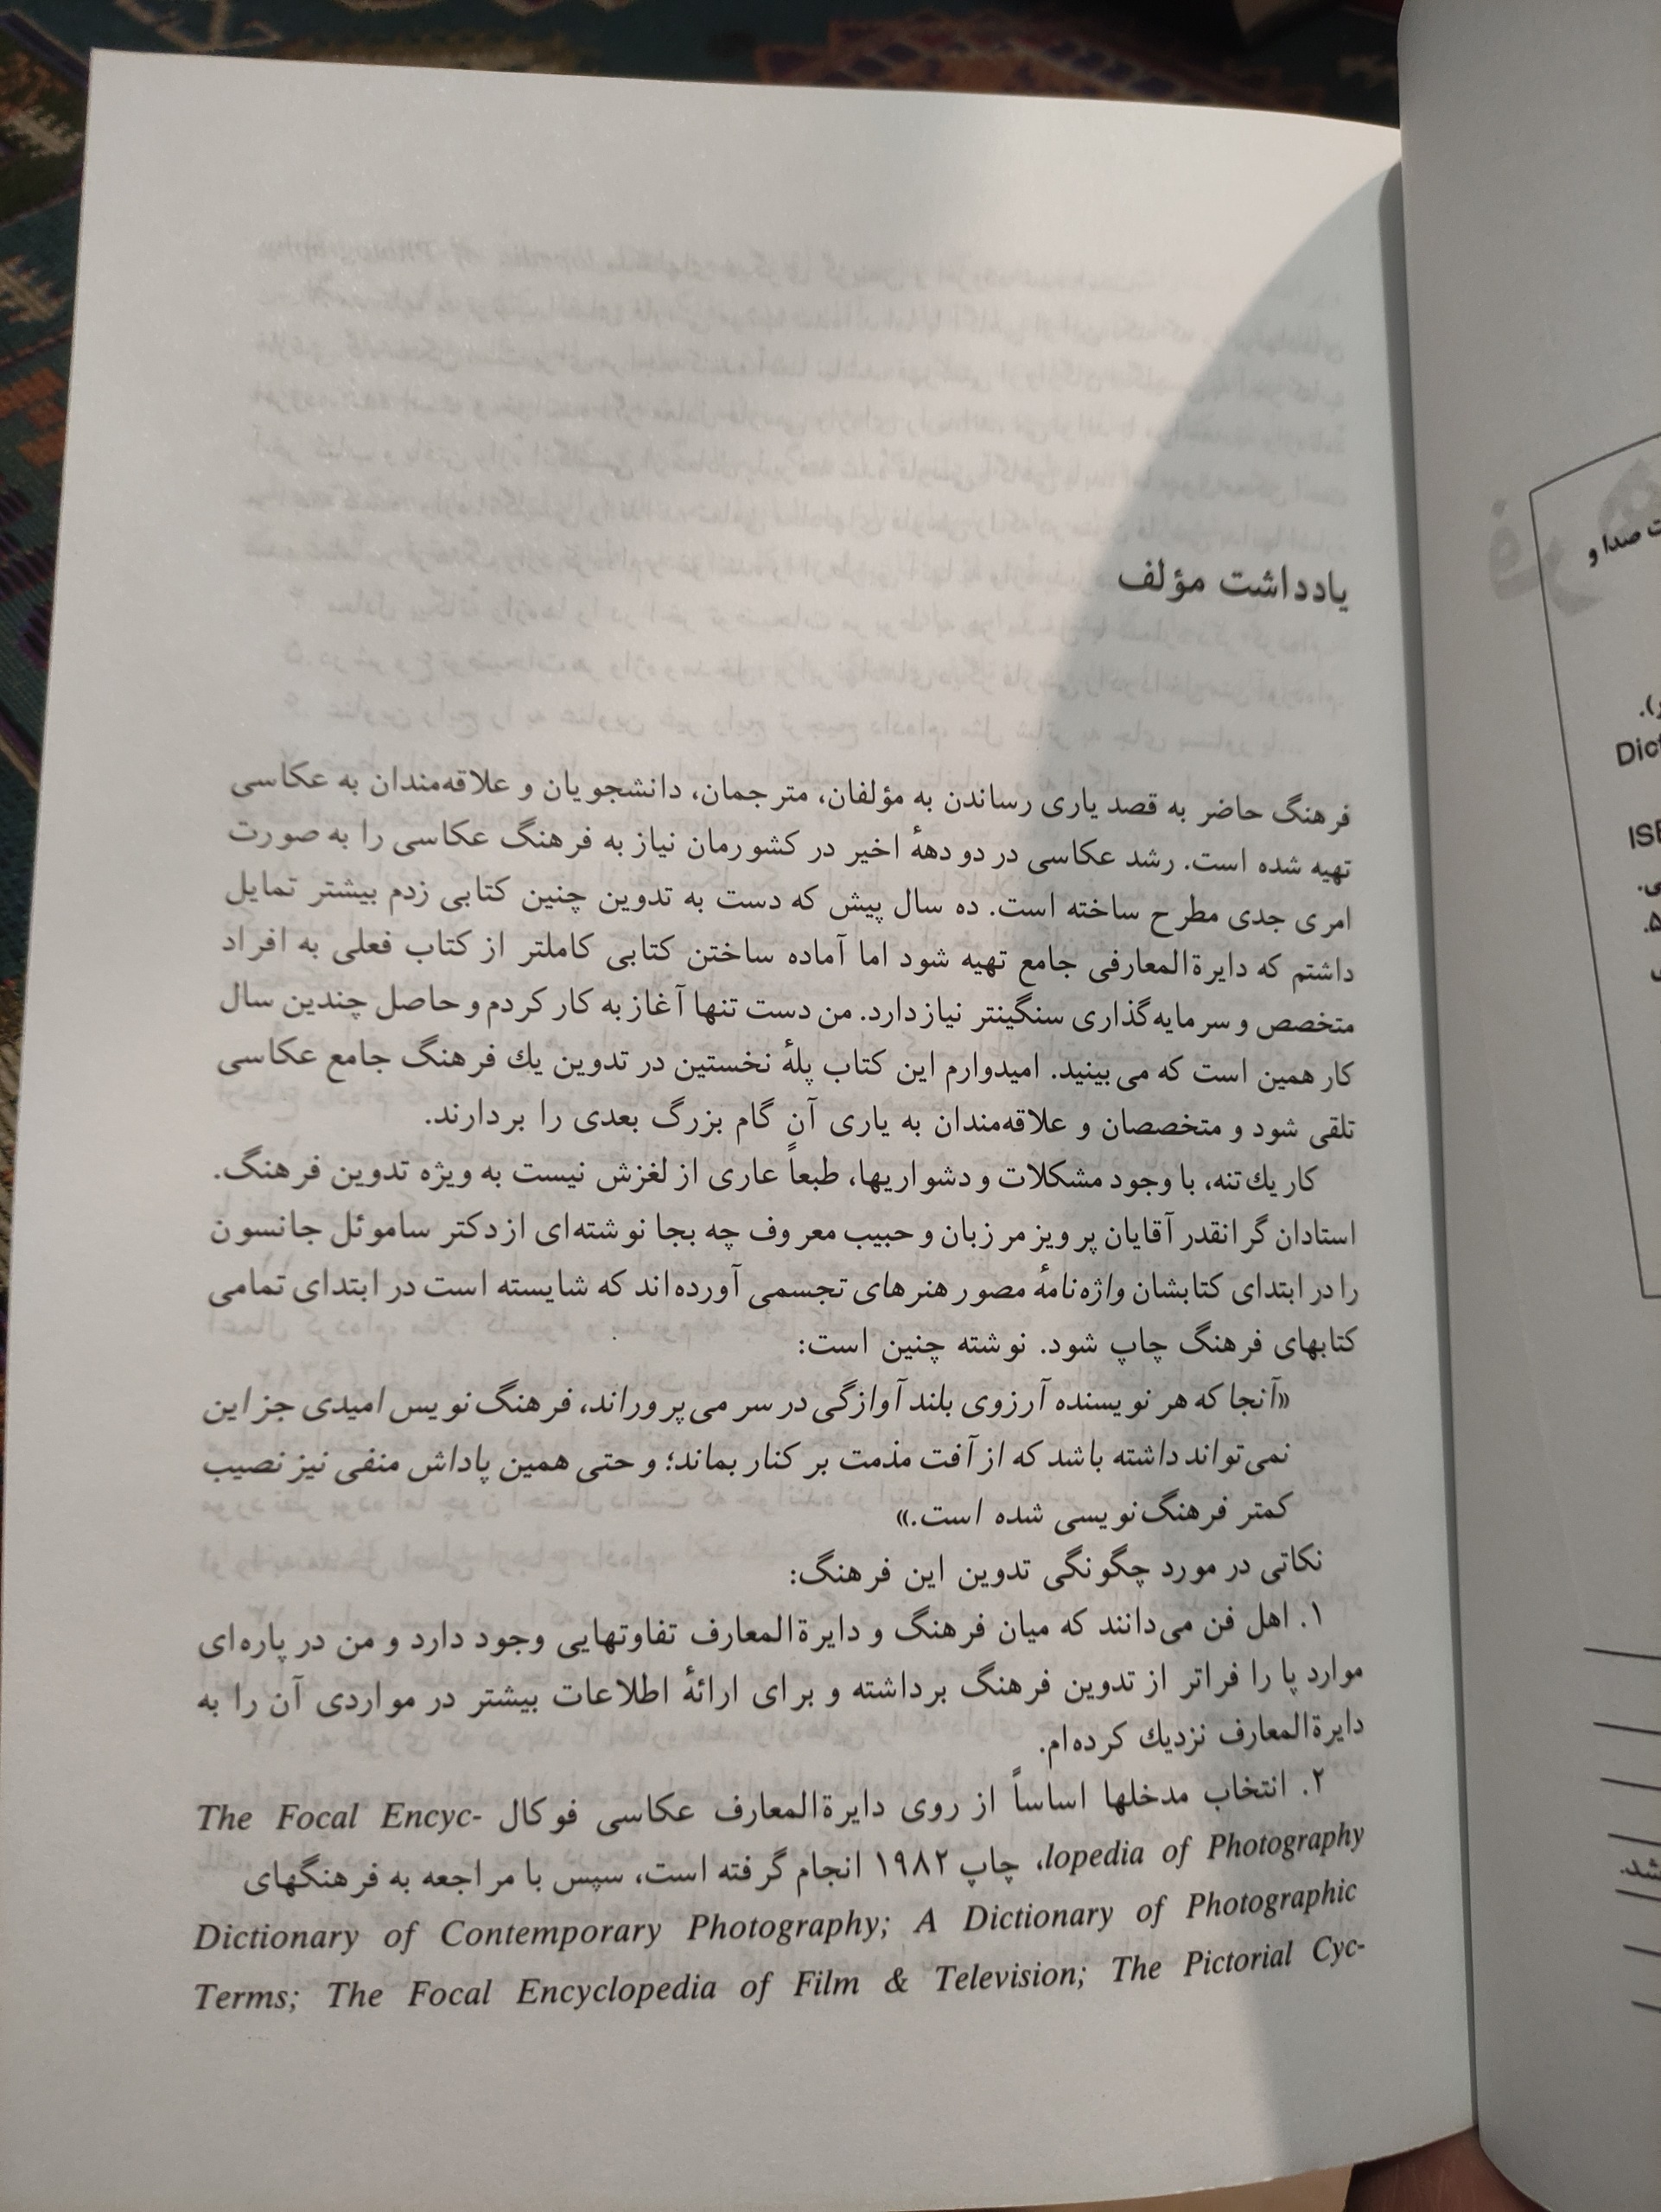 یادداشت مؤلف
فرهنگ حاضر به قصد یاری رساندن به مؤلفان، مترجمان، دانشجویان و علاقه‌مندان به عکاسی
تهیه شده است. رشد عکاسی در دو دههٔ اخیر در کشورمان نیاز به فرهنگ عکاسی را به صورت
امری جدی مطرح ساخته است. ده سال پیش که دست به تدوین چنین کتابی زدم بیشتر تمایل
داشتم که دایرةالمعارفی جامع تهیه شود اما آماده ساختن کتابی کاملتر از کتاب فعلی به افراد
متخصص و سرمایه‌گذاری سنگینتر نیاز دارد. من دست تنها آغاز به کار کردم و حاصل چندین سال
کار همین است که می‌بینید. امیدوارم این کتاب پلهٔ نخستین در تدوین یك فرهنگ جامع عکاسی
تلقی شود و متخصصان و علاقه‌مندان به یاری آن گام بزرگ بعدی را بردارند.
کار یك‌تنه، با وجود مشکلات و دشواریها، طبعاً عاری از لغزش نیست به ویژه تدوین فرهنگ.
استادان گرانقدر آقایان پرویز مرزبان و حبیب معروف چه بجا نوشته‌ای از دکتر ساموئل جانسون
را در ابتدای کتابشان واژه‌نامهٔ مصور هنرهای تجسمی آورده‌اند که شایسته است در ابتدای تمامی
کتابهای فرهنگ چاپ شود. نوشته چنین است:
«آنجا که هر نویسنده آرزوی بلند آوازگی در سر می‌پروراند، فرهنگ‌نویس امیدی جز این
نمی‌تواند داشته باشد که از آفت مذمت بر کنار بماند؛ و حتی همین پاداش منفی نیز نصیب
کمتر فرهنگ‌نویسی شده است.»
نکاتی در مورد چگونگی تدوین این فرهنگ:
۱. اهل فن می‌دانند که میان فرهنگ و دایرةالمعارف تفاوتهایی وجود دارد و من در پاره‌ای
موارد پا را فراتر از تدوین فرهنگ برداشته و برای ارائهٔ اطلاعات بیشتر در مواردی آن را به
دایرةالمعارف نزدیك کرده‌ام.
۲. انتخاب مدخلها اساساً از روی دایرةالمعارف عکاسی فوکال The Focal Encyc-
lopedia of Photography، چاپ ۱۹۸۲ انجام گرفته است، سپس با مراجعه به فرهنگهای
Dictionary of Contemporary Photography; A Dictionary of Photographic
Terms; The Focal Encyclopedia of Film & Television; The Pictorial Cyc-
ت صدا و
Dict